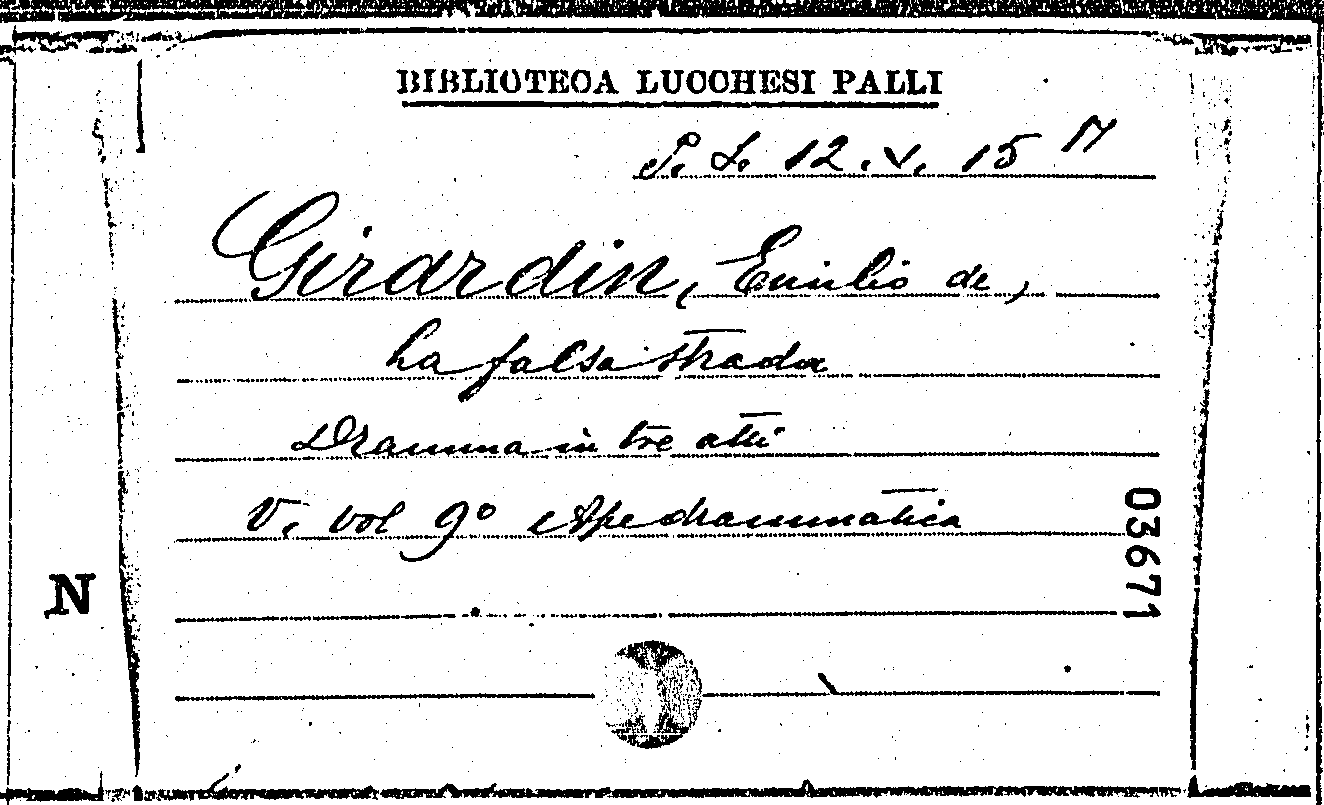 BIBLIOTECA LUCCHESI PALLI
P. S. 12. V. 15 M
Girardin, Emilio de,
La falsa strada
Dramma in tre atti
V. vol 9º Ape drammatica
N
03671